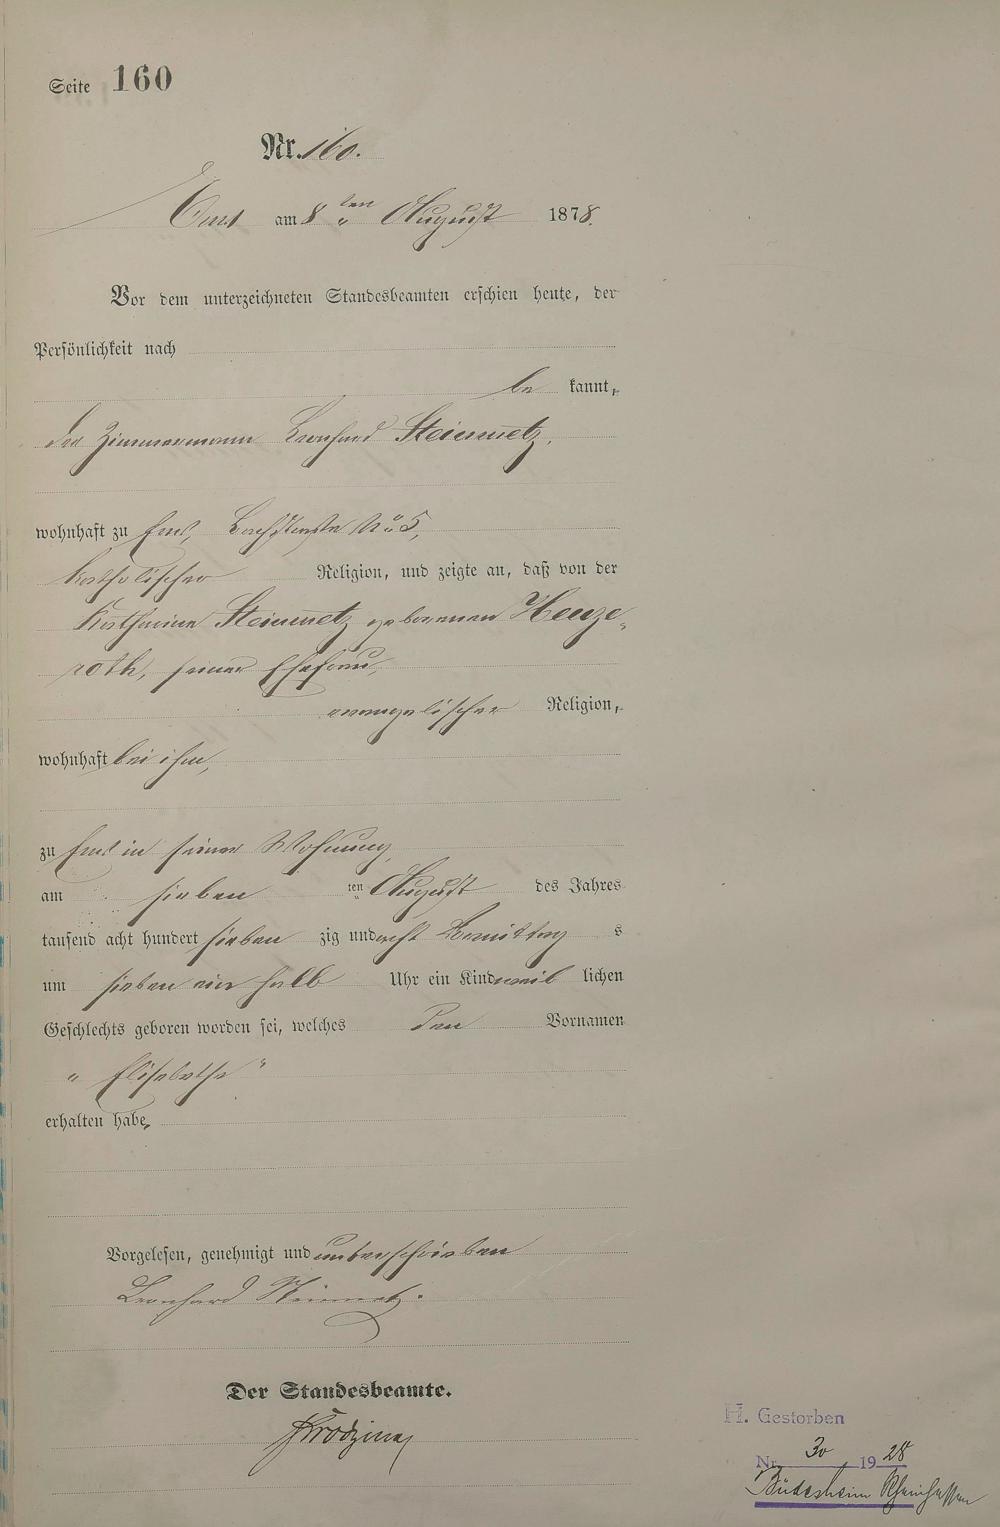 Seite 160
Nr. 160.
Ems am 8 ten August 1878.
Vor dem unterzeichneten Standesbeamten erschien heute, der
Persönlichkeit nach
be kannt,
der Zimmermann Leonhard Steinmetz,
wohnhaft zu Ems, Bachstraße No 5,
katholischer Religion, und zeigte an, daß von der
Katharina Steinmetz geborenen Henze-
roth, seiner Ehefrau,
evangelischer Religion,
wohnhaft bei ihm,
zu Ems in seiner Wohnung
am sieben ten August des Jahres
tausend acht hundert sieben zig und acht Vormittag s
um sieben ein halb Uhr ein Kind weib lichen
Geschlechts geboren worden sei, welches den Vornamen
"Elisabethe"
erhalten habe,
Vorgelesen, genehmigt und unterschrieben
Leonhard Steinmetz.
Der Standesbeamte.
H. Gestorben
Nr. 30 1928
Büdesheim Rheinhessen